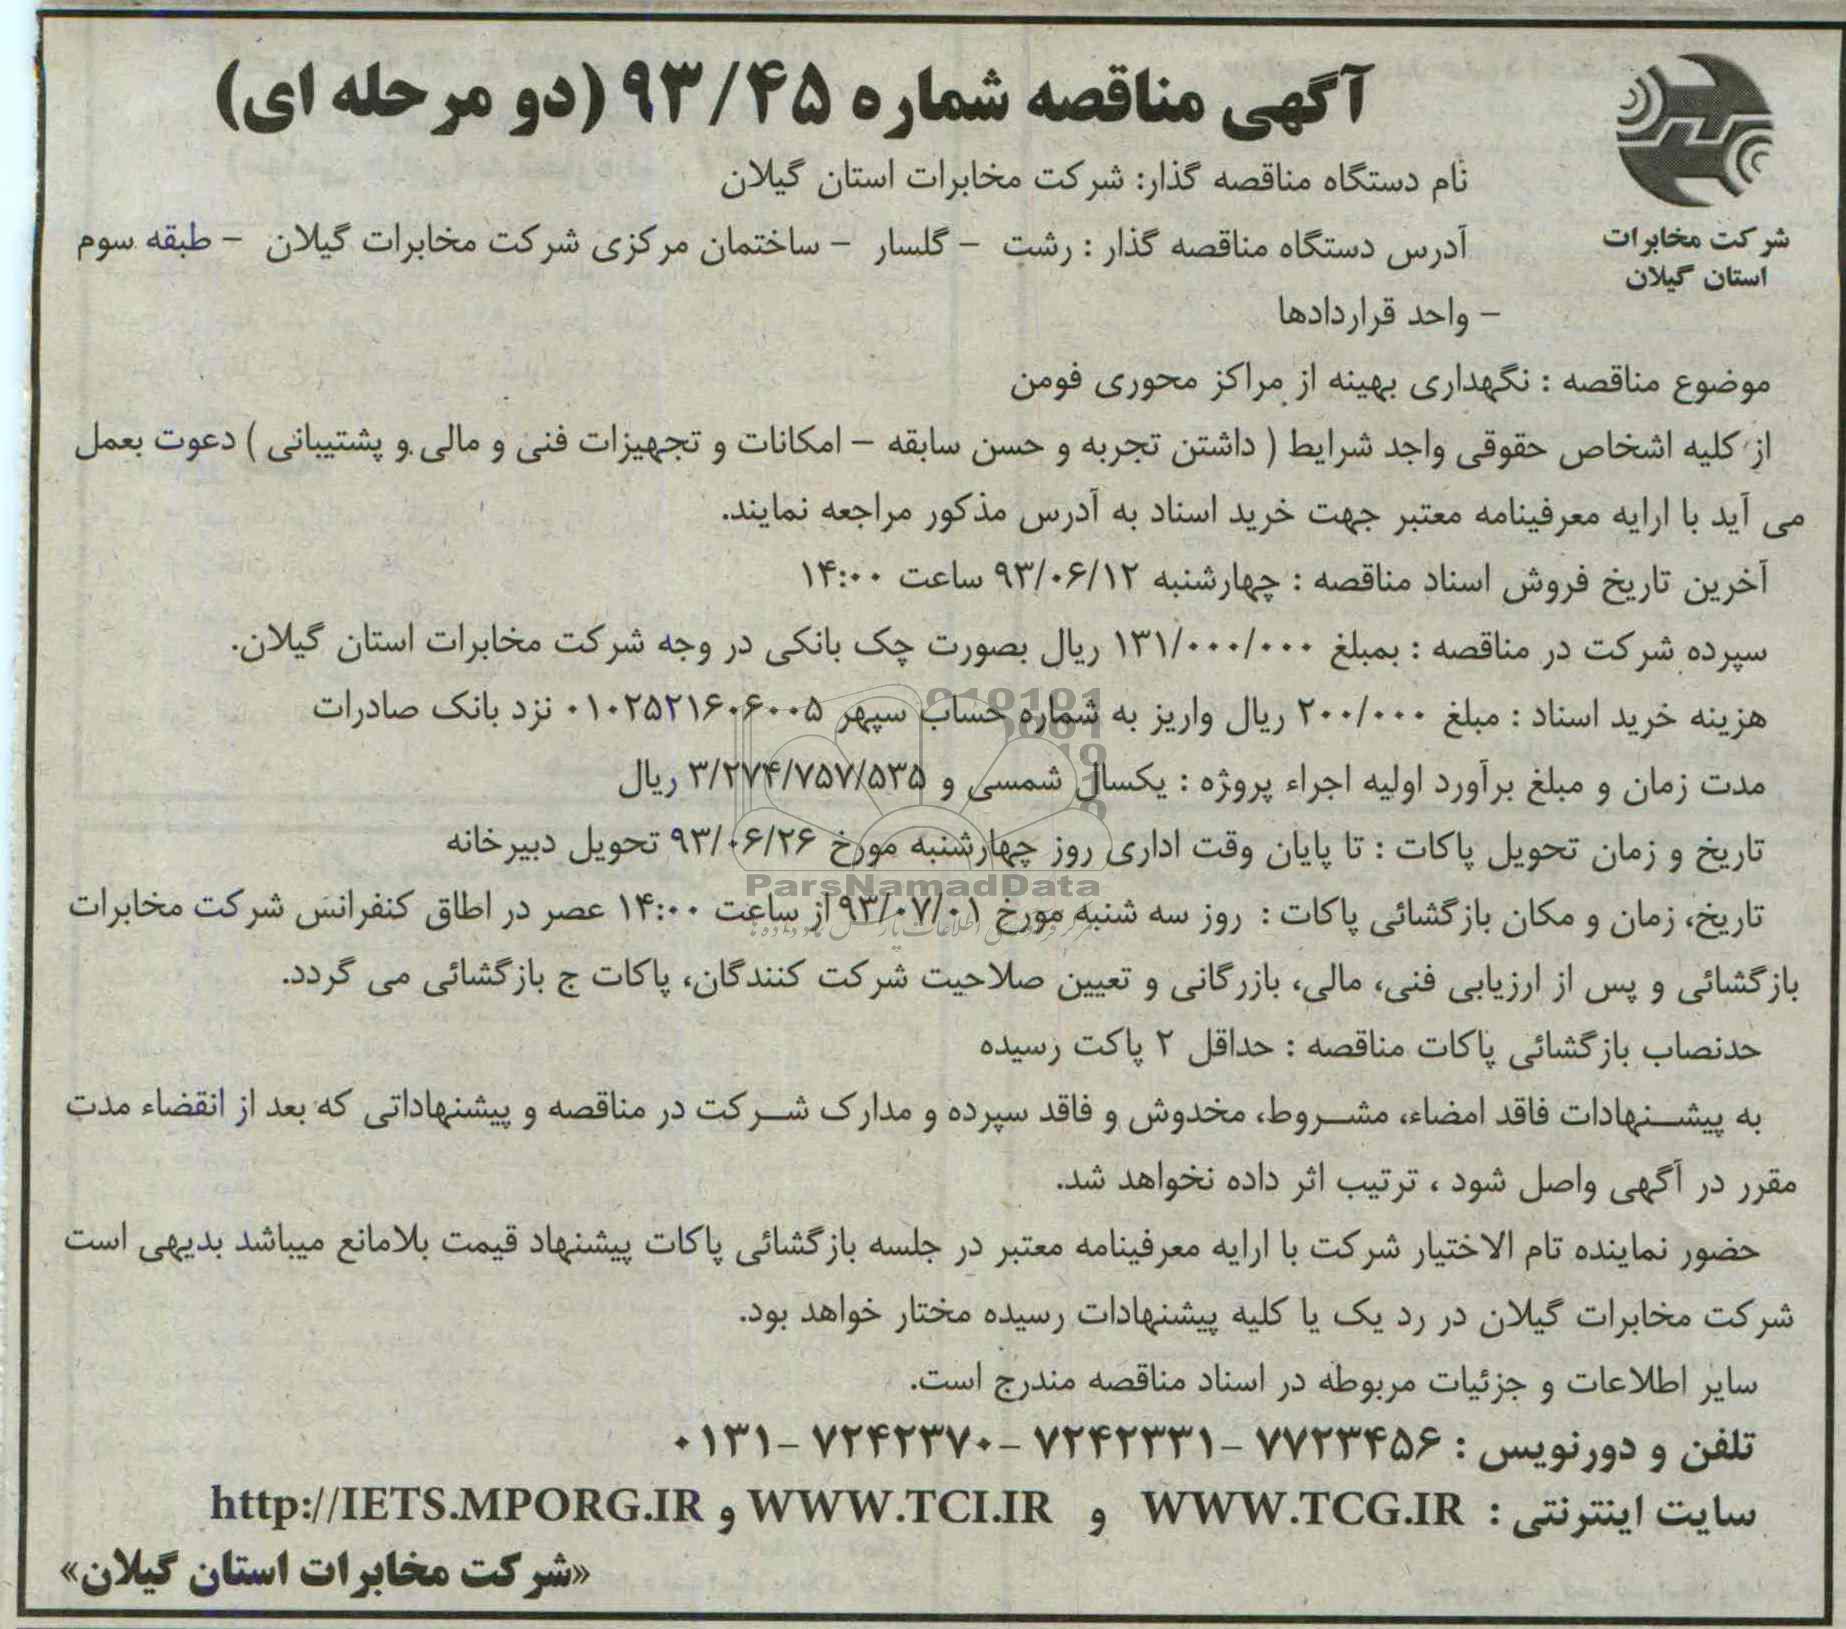 آگهی مناقصه شماره ۹۳/۴۵ (دو مرحله ای)
شرکت مخابرات
استان گیلان
نام دستگاه مناقصه گذار: شرکت مخابرات استان گیلان
آدرس دستگاه مناقصه گذار : رشت – گلسار – ساختمان مرکزی شرکت مخابرات گیلان – طبقه سوم
– واحد قراردادها
موضوع مناقصه : نگهداری بهینه از مراکز محوری فومن
از کلیه اشخاص حقوقی واجد شرایط ( داشتن تجربه و حسن سابقه – امکانات و تجهیزات فنی و مالی و پشتیبانی ) دعوت بعمل
می آید با ارایه معرفینامه معتبر جهت خرید اسناد به آدرس مذکور مراجعه نمایند.
آخرین تاریخ فروش اسناد مناقصه : چهارشنبه ۹۳/۰۶/۱۲ ساعت ۱۴:۰۰
سپرده شرکت در مناقصه : بمبلغ ۱۳۱/۰۰۰/۰۰۰ ریال بصورت چک بانکی در وجه شرکت مخابرات استان گیلان.
هزینه خرید اسناد : مبلغ ۲۰۰/۰۰۰ ریال واریز به شماره حساب سپهر ۰۱۰۲۵۲۱۶۰۶۰۰۵ نزد بانک صادرات
مدت زمان و مبلغ برآورد اولیه اجراء پروژه : یکسال شمسی و ۳/۲۷۴/۷۵۷/۵۳۵ ریال
تاریخ و زمان تحویل پاکات : تا پایان وقت اداری روز چهارشنبه مورخ ۹۳/۰۶/۲۶ تحویل دبیرخانه
ParsNamadData
تاریخ، زمان و مکان بازگشائی پاکات : روز سه شنبه مورخ ۹۳/۰۷/۰۱ از ساعت ۱۴:۰۰ عصر در اطاق کنفرانس شرکت مخابرات
بازگشائی و پس از ارزیابی فنی، مالی، بازرگانی و تعیین صلاحیت شرکت کنندگان، پاکات ج بازگشائی می گردد.
حدنصاب بازگشائی پاکات مناقصه : حداقل ۲ پاکت رسیده
به پیشنهادات فاقد امضاء، مشروط، مخدوش و فاقد سپرده و مدارک شرکت در مناقصه و پیشنهاداتی که بعد از انقضاء مدت
مقرر در آگهی واصل شود ، ترتیب اثر داده نخواهد شد.
حضور نماینده تام الاختیار شرکت با ارایه معرفینامه معتبر در جلسه بازگشائی پاکات پیشنهاد قیمت بلامانع میباشد بدیهی است
شرکت مخابرات گیلان در رد یک یا کلیه پیشنهادات رسیده مختار خواهد بود.
سایر اطلاعات و جزئیات مربوطه در اسناد مناقصه مندرج است.
تلفن و دورنویس : ۷۷۲۳۴۵۶ – ۷۲۴۲۳۳۱ – ۷۲۴۲۳۷۰ – ۰۱۳۱
سایت اینترنتی : WWW.TCG.IR و WWW.TCI.IR و http://IETS.MPORG.IR
«شرکت مخابرات استان گیلان»